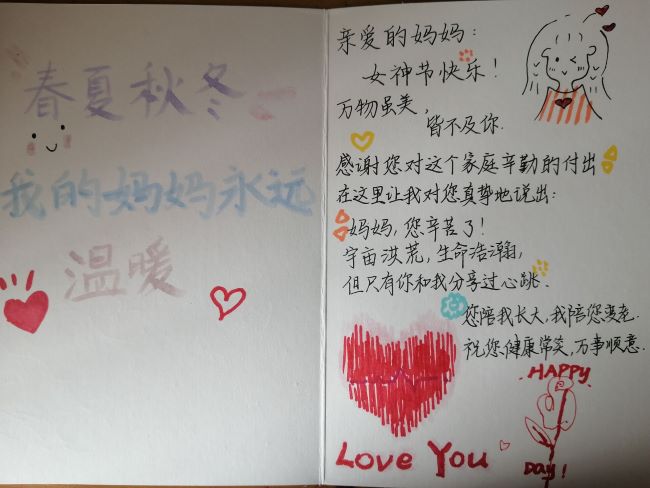 春夏秋冬
我的妈妈永远
温暖
亲爱的妈妈：
女神节快乐！
万物虽美，
皆不及你.
感谢您对这个家庭辛勤的付出
在这里让我对您真挚地说出：
妈妈，您辛苦了！
宇宙洪荒，生命浩瀚，
但只有你和我分享过心跳.
您陪我长大，我陪您变老.
祝您健康常笑，万事顺意.
Love You
HAPPY
DAY!